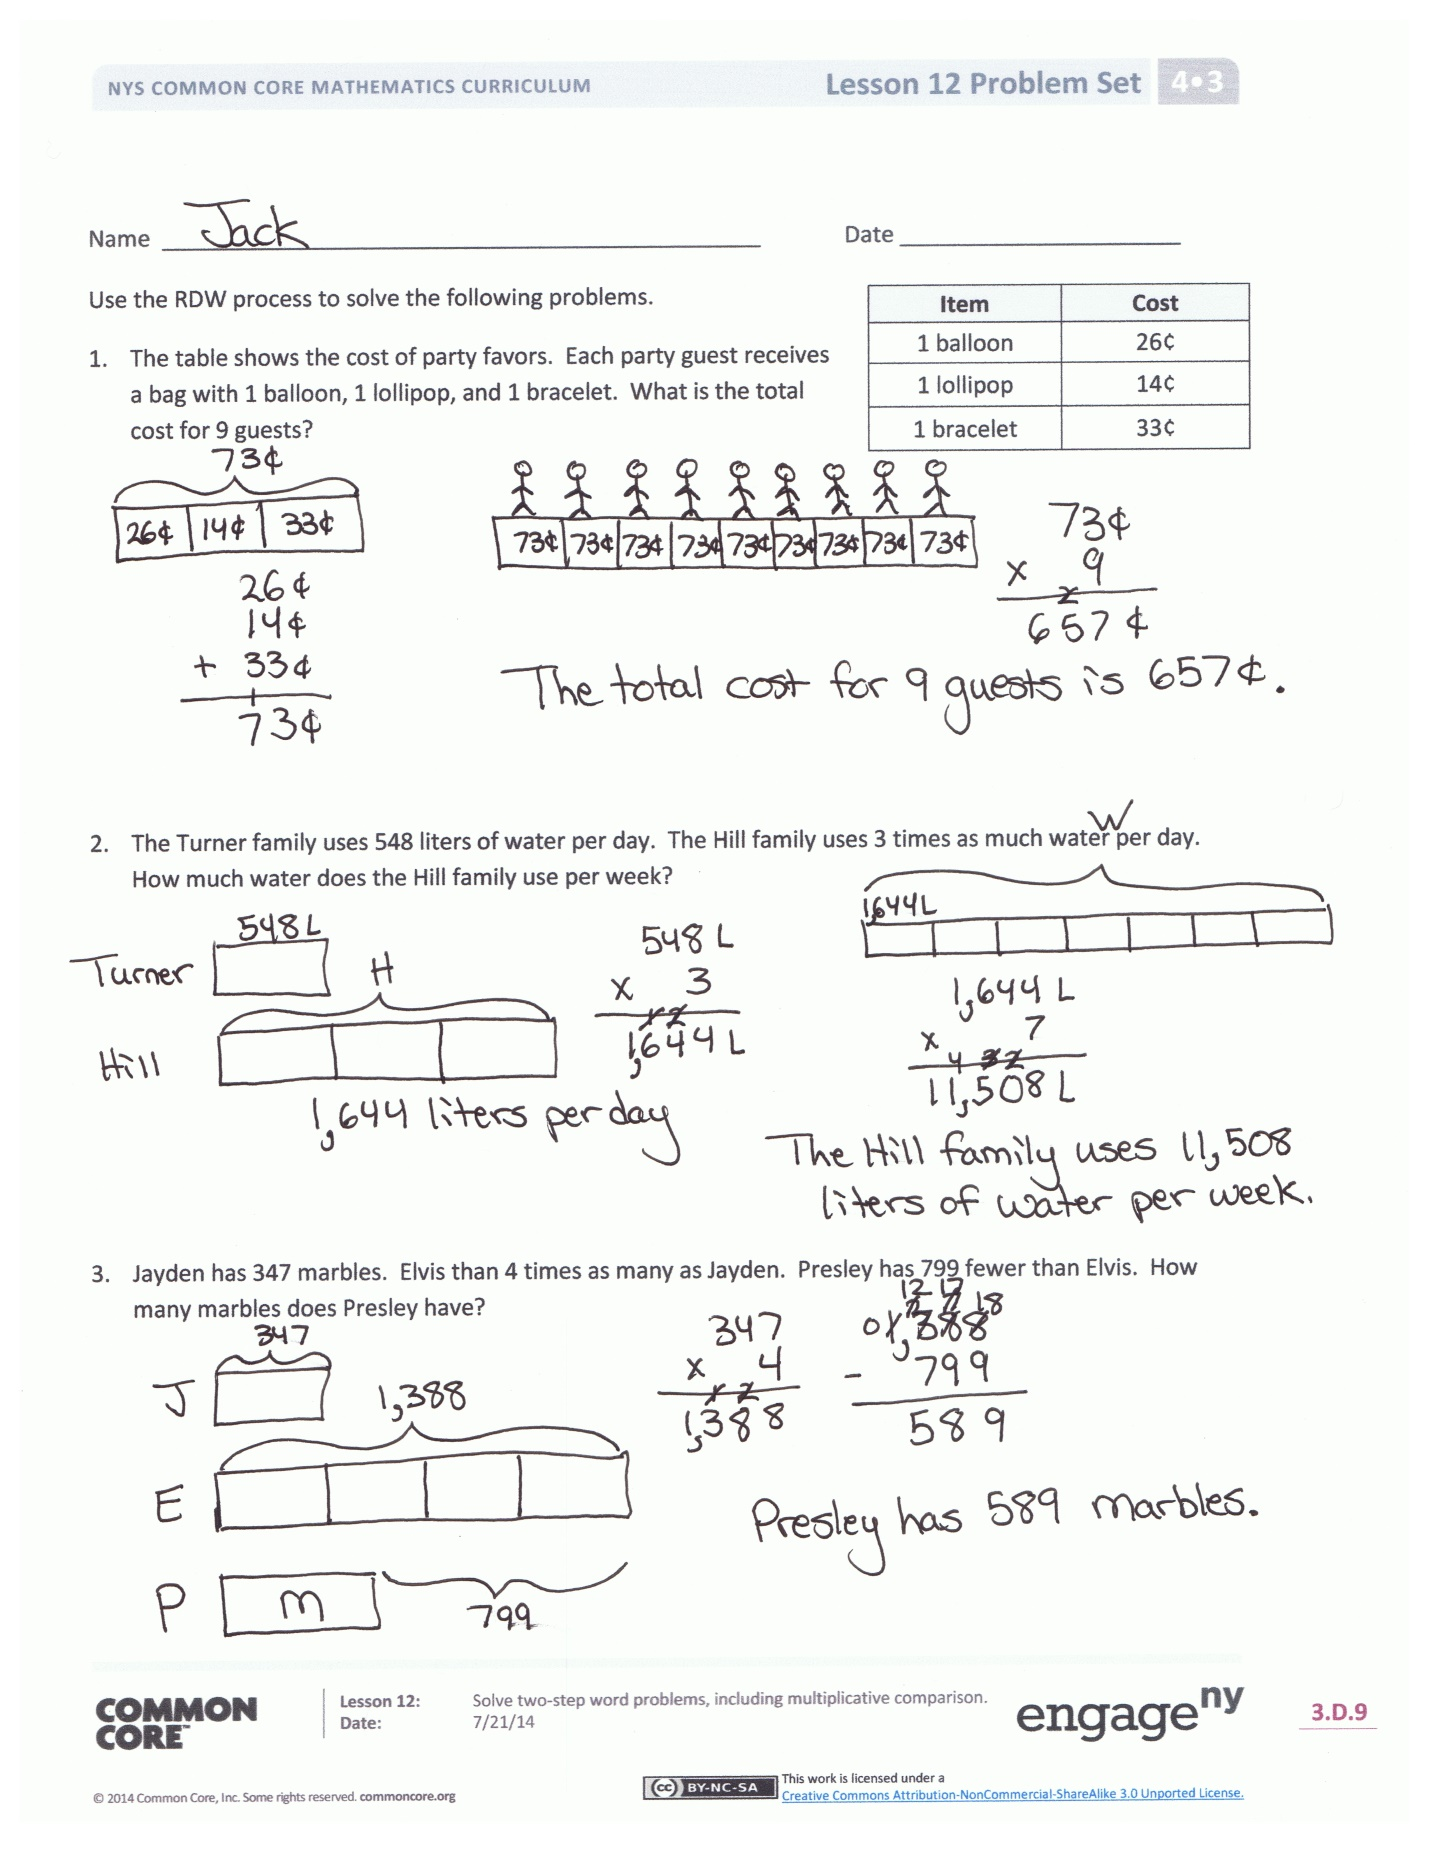 NYS COMMON CORE MATHEMATICS CURRICULUM Lesson 12 Problem Set 4•3
Name Jack Date
Use the RDW process to solve the following problems.
Item Cost
1 balloon 26¢
1 lollipop 14¢
1 bracelet 33¢
1. The table shows the cost of party favors. Each party guest receives
a bag with 1 balloon, 1 lollipop, and 1 bracelet. What is the total
cost for 9 guests?
73¢
26¢ 14¢ 33¢
26¢
14¢
+ 33¢
1
73¢
73¢ 73¢ 73¢ 73¢ 73¢ 73¢ 73¢ 73¢ 73¢
73¢
x 9
2
657¢
The total cost for 9 guests is 657¢.
2. The Turner family uses 548 liters of water per day. The Hill family uses 3 times as much water per day.
How much water does the Hill family use per week?
548 L
Turner
H
Hill
548 L
x 3
1 2
1,644 L
1,644 liters per day
W
1,644 L
1,644 L
x 7
4 3 2
11,508 L
The Hill family uses 11,508
liters of water per week.
3. Jayden has 347 marbles. Elvis than 4 times as many as Jayden. Presley has 799 fewer than Elvis. How
many marbles does Presley have?
347
J
1,388
E
P m
799
347
x 4
1 2
1,388
12 17
2 7 18
0 1,388
- 799
589
Presley has 589 marbles.
COMMON
CORE™
Lesson 12: Solve two-step word problems, including multiplicative comparison.
Date: 7/21/14
engageny
3.D.9
© 2014 Common Core, Inc. Some rights reserved. commoncore.org
cc BY-NC-SA
This work is licensed under a
Creative Commons Attribution-NonCommercial-ShareAlike 3.0 Unported License.